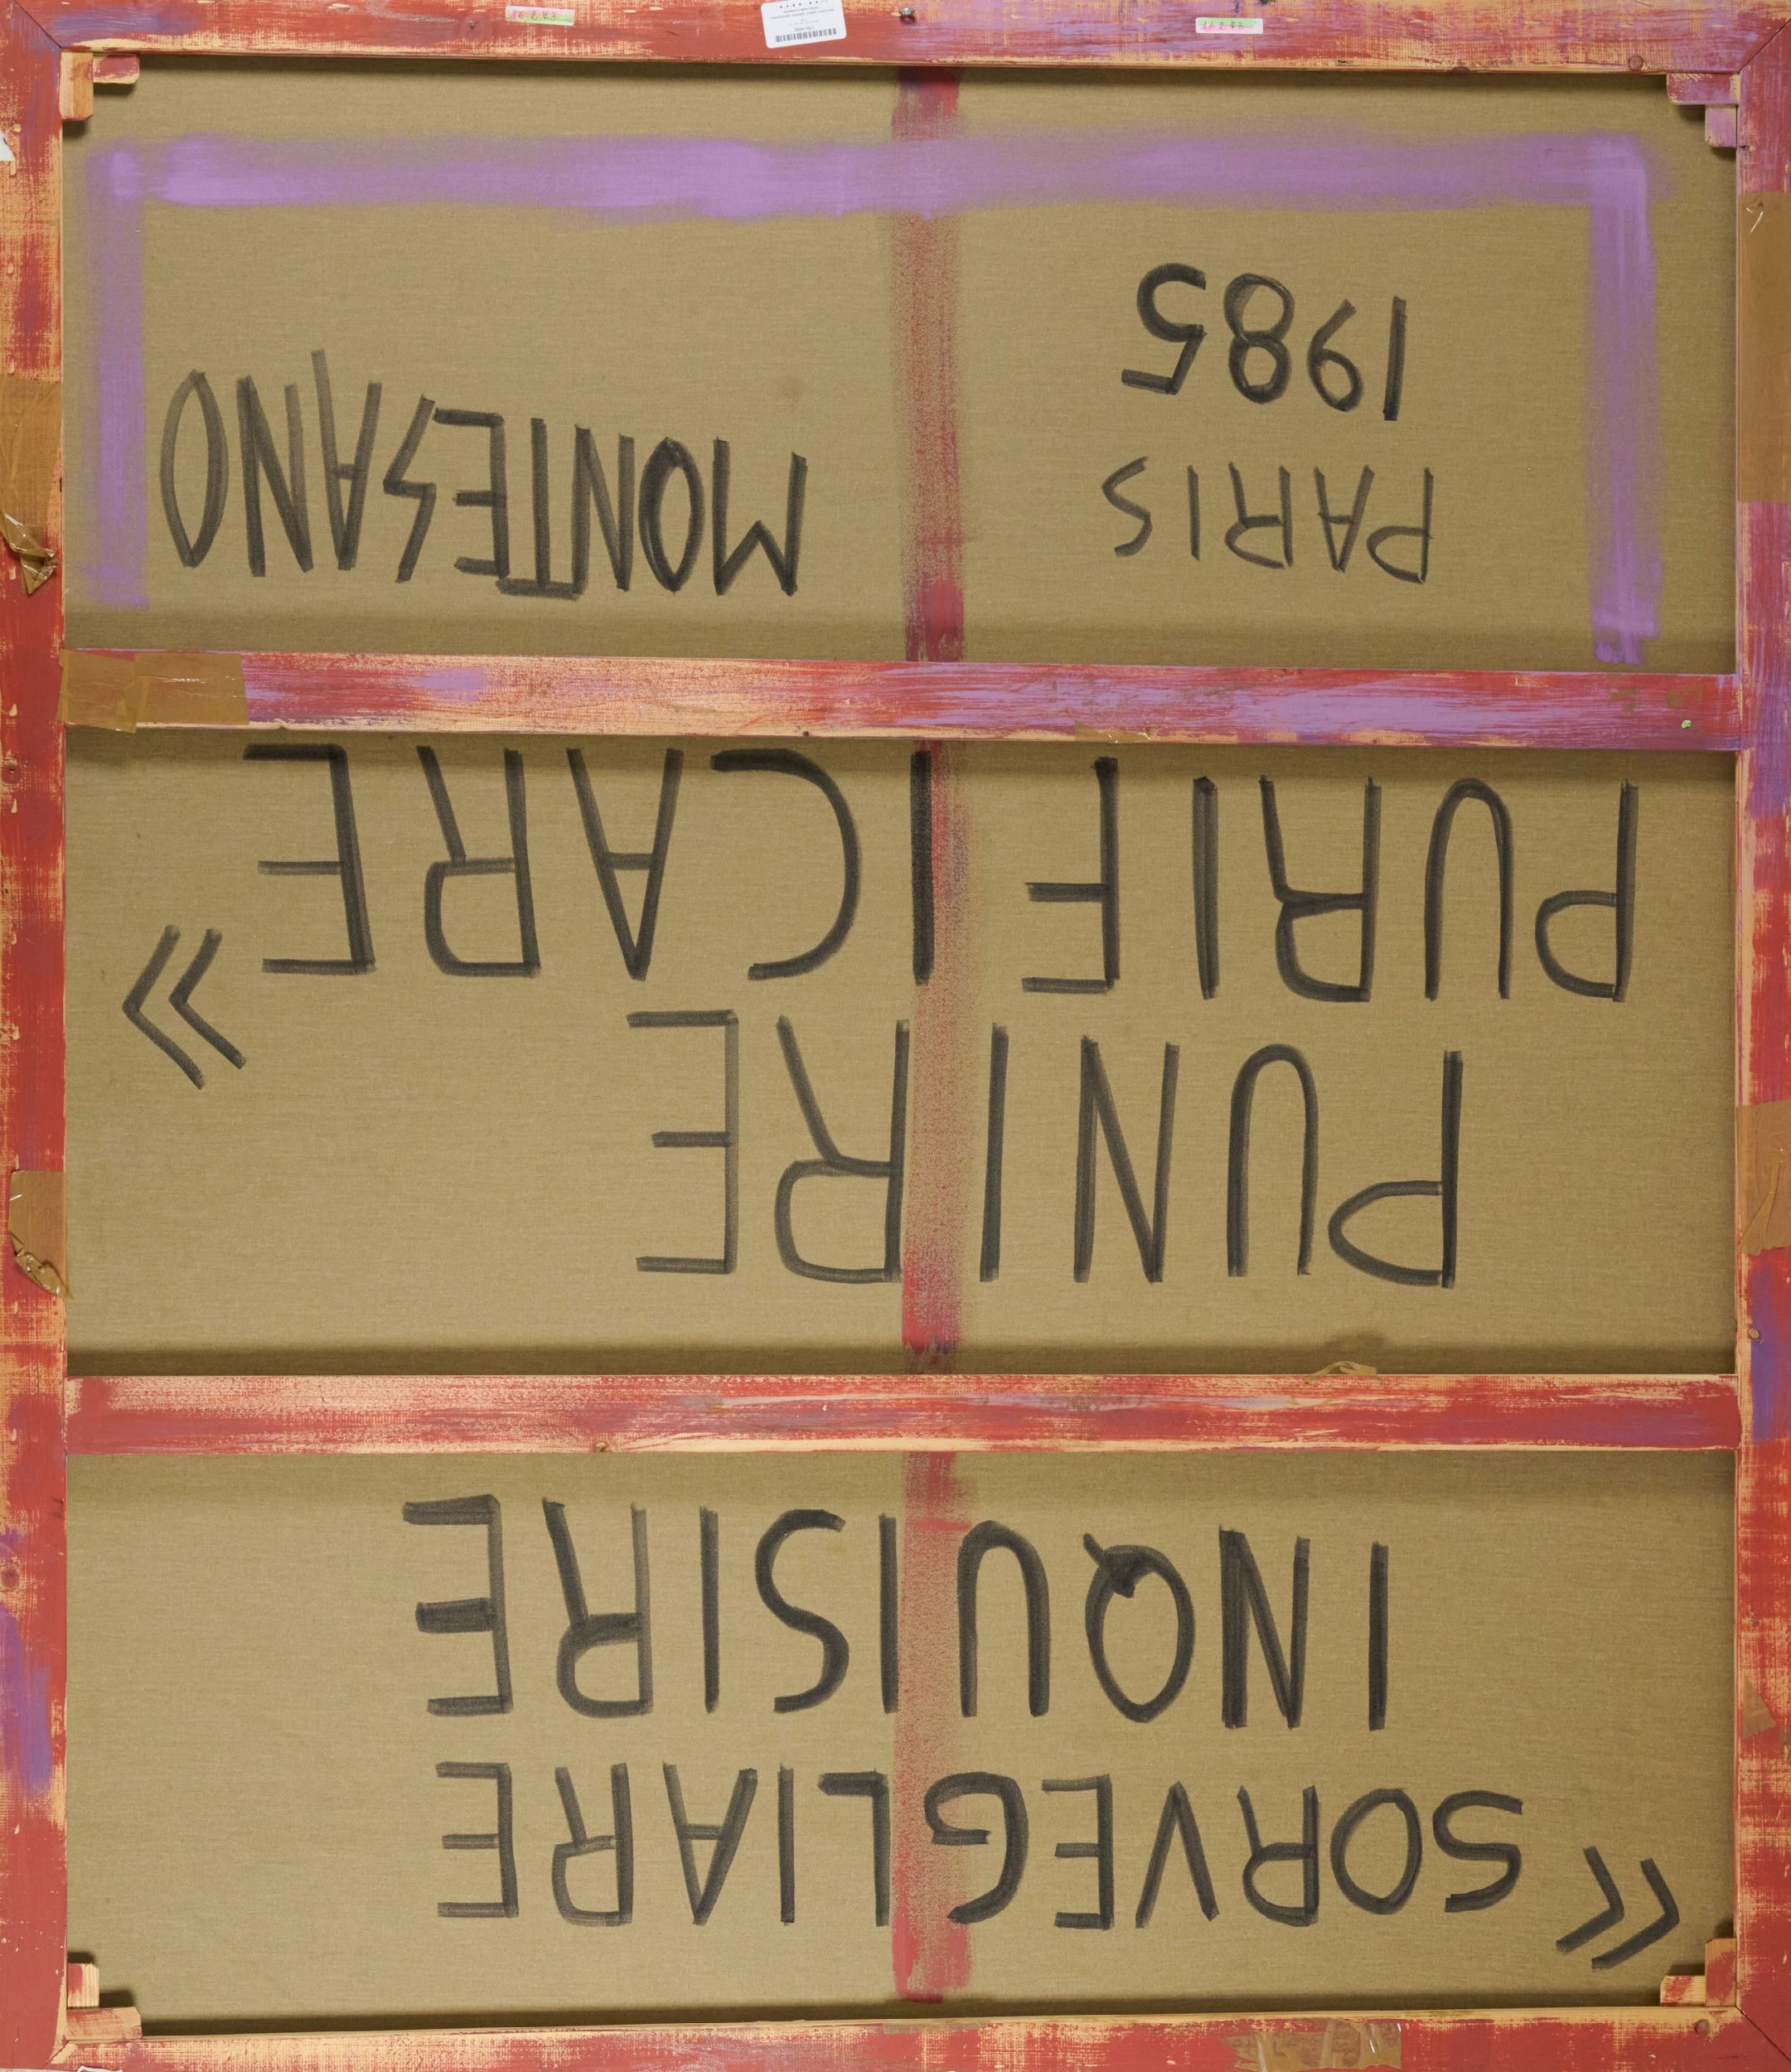 «SORVEGLIARE
INQUISIRE
PUNIRE
PURIFICARE»
PARIS
1985
MONTESANO